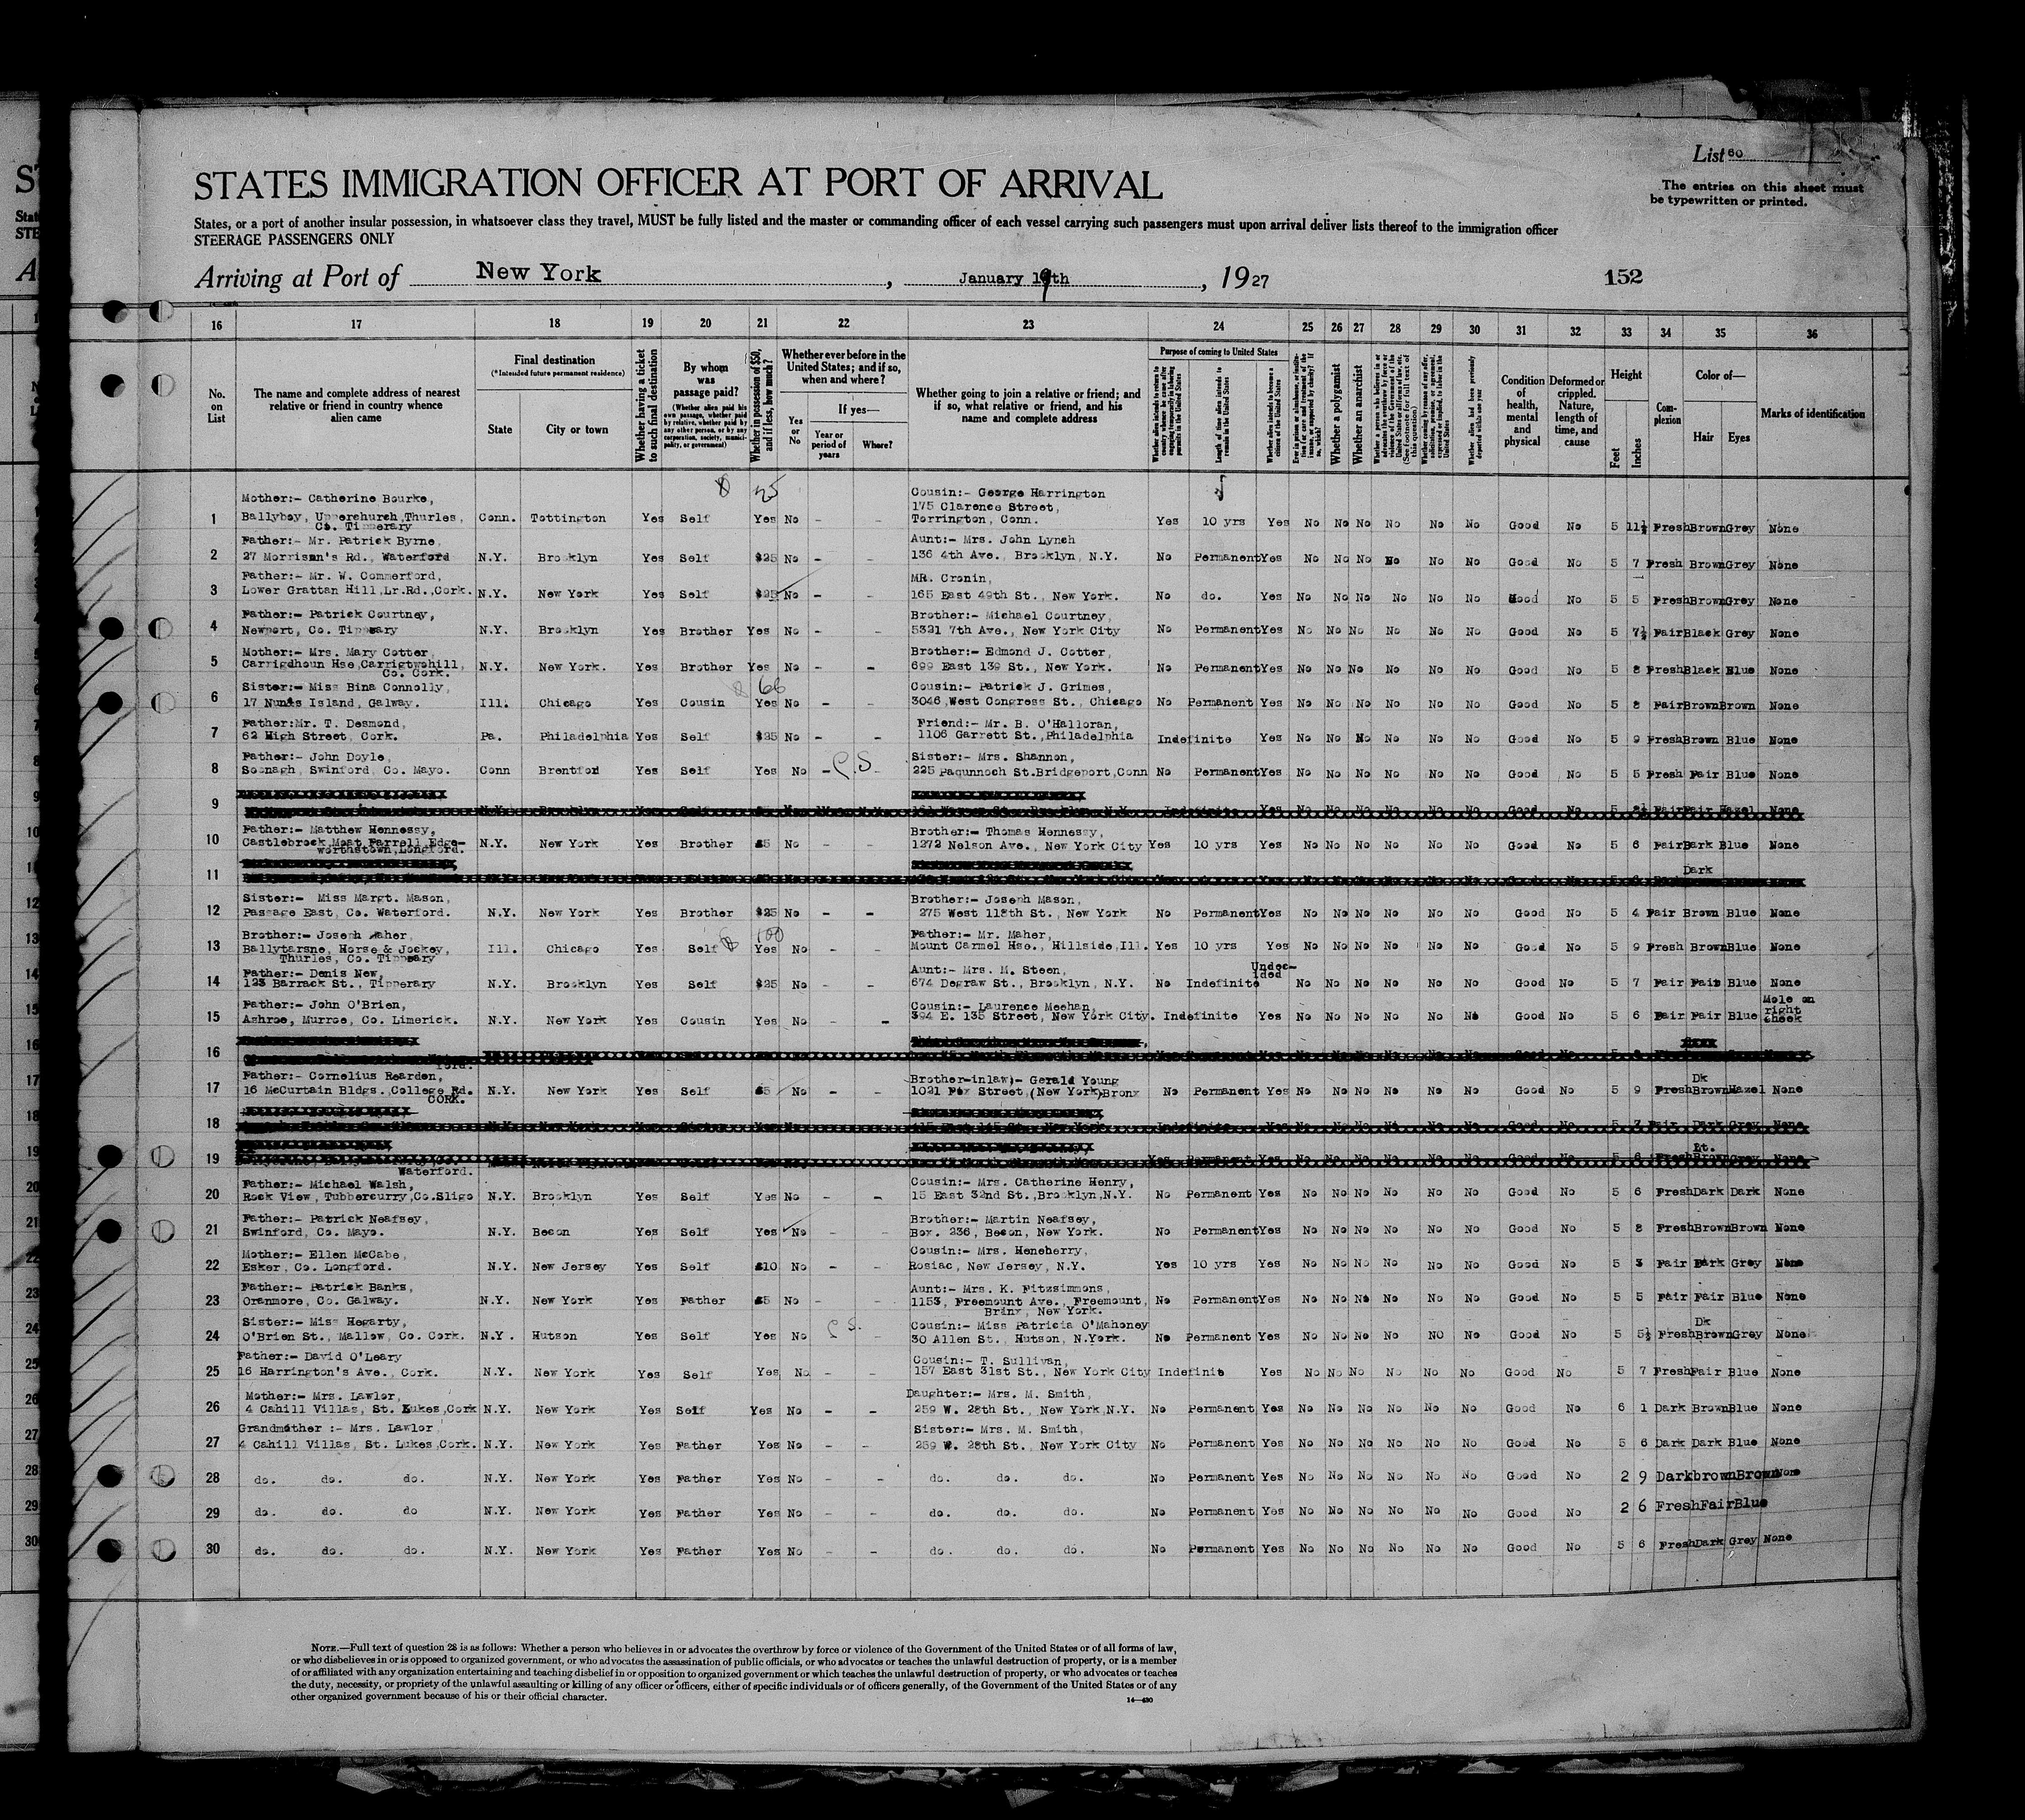 List 60
STATES IMMIGRATION OFFICER AT PORT OF ARRIVAL
The entries on this sheet must
be typewritten or printed.
States, or a port of another insular possession, in whatsoever class they travel, MUST be fully listed and the master or commanding officer of each vessel carrying such passengers must upon arrival deliver lists thereof to the immigration officer
STEERAGE PASSENGERS ONLY
Arriving at Port of New York, January 19th, 1927 152
16 17 18 19 20 21 22 23 24 25 26 27 28 29 30 31 32 33 34 35 36
No. on List
The name and complete address of nearest relative or friend in country whence alien came
Final destination (*Intended future permanent residence)
State City or town
Whether having a ticket to such final destination
By whom was passage paid?
(Whether alien paid his own passage, whether paid by relative, whether paid by any other person, or by any corporation, society, municipality, or government)
Whether in possession of $50, and if less, how much?
Whether ever before in the United States; and if so, when and where?
Yes or No If yes— Year or period of years Where?
Whether going to join a relative or friend; and if so, what relative or friend, and his name and complete address
Purpose of coming to United States
Length of time alien intends to remain in the United States
Whether alien intends to become a citizen of the United States
Whether a polygamist
Whether an anarchist
Condition of health, mental and physical
Deformed or crippled. Nature, length of time, and cause
Height Feet Inches
Complexion
Color of— Hair Eyes
Marks of identification
8 25
Mother:- Catherine Bourke, Cousin:- George Harrington
175 Clarence Street,
1 Ballyboy, Upperchurch,Thurles, Conn. Tottington Yes Self Yes No - - Torrington, Conn. Yes 10 yrs Yes No No No No No No Good No 5 11½ Fresh Brown Grey None
Co. Tipperary
Father:- Mr. Patrick Byrne, Aunt:- Mrs. John Lynch
2 27 Morrisan's Rd., Waterford N.Y. Brooklyn Yes Self $25 No - - 136 4th Ave., Brooklyn, N.Y. No Permanent Yes No No No No No No Good No 5 7 Fresh Brown Grey None
Father:- Mr. W. Commerford, MR. Cronin,
3 Lower Grattan Hill,Lr.Rd.,Cork. N.Y. New York Yes Self $25 No - - 165 East 49th St., New York. No do. Yes No No No No No No Good No 5 5 Fresh Brown Grey None
Father:- Patrick Courtney, Brother:- Michael Courtney,
4 Newport, Co. Tipperary N.Y. Brooklyn Yes Brother Yes No - - 5321 7th Ave., New York City No Permanent Yes No No No No No No Good No 5 7½ Fair Black Grey None
Mother:- Mrs. Mary Cotter, Brother:- Edmond J. Cotter,
5 Carrigdhoun Hse,Carrigtwohill, N.Y. New York. Yes Brother Yes No - - 699 East 139 St., New York. No Permanent Yes No No No No No No Good No 5 8 Fresh Black Blue None
Co. Cork.
66
Sister:- Miss Bina Connolly, Cousin:- Patrick J. Grimes,
6 17 Nun's Island, Galway. Ill. Chicago Yes Cousin Yes No - - 3046 West Congress St., Chicago No Permanent Yes No No No No No No Good No 5 8 Fair Brown Brown None
Father:Mr. T. Desmond, Friend:- Mr. B. O'Halloran,
7 62 High Street, Cork. Pa. Philadelphia Yes Self $25 No - - 1106 Garrett St.,Philadelphia Indefinite Yes No No No No No No Good No 5 9 Fresh Brown Blue None
Father:- John Doyle, Sister:- Mrs. Shannon,
8 Soonagh, Swinford, Co. Mayo. Conn Brentford Yes Self Yes No - - 225 Paqunnoch St.Bridgeport,Conn No Permanent Yes No No No No No No Good No 5 5 Fresh Fair Blue None
9
Father:- Matthew Hennessy, Brother:- Thomas Hennessy,
10 Castlebrock,Moat Farrell,Edge- N.Y. New York Yes Brother $5 No - - 1272 Nelson Ave., New York City Yes 10 yrs Yes No No No No No No Good No 5 6 Fair Dark Blue None
worthstown,Longford.
Dark
11
Sister:- Miss Margt. Mason, Brother:- Joseph Mason,
12 Passage East, Co. Waterford. N.Y. New York Yes Brother $25 No - - 275 West 118th St., New York No Permanent Yes No No No No No No Good No 5 4 Fair Brown Blue None
100
Brother:- Joseph Maher, Father:- Mr. Maher,
13 Ballytarsne, Horse & Jockey, Ill. Chicago Yes Self Yes No - - Mount Carmel Hse., Hillside,Ill. Yes 10 yrs Yes No No No No No No Good No 5 9 Fresh Brown Blue None
Thurles, Co. Tipperary
Father:- Denis New, Aunt:- Mrs. M. Steen, Undec-ided
14 123 Barrack St., Tipperary N.Y. Brooklyn Yes Self $25 No - - 674 Degraw St., Brooklyn, N.Y. No Indefinite No No No No No No Good No 5 7 Fair Fair Blue None
Father:- John O'Brien, Cousin:- Laurence Meehan,
15 Ashroe, Murroe, Co. Limerick. N.Y. New York Yes Cousin Yes No - - 394 E. 135 Street, New York City. Indefinite Yes No No No No No No Good No 5 6 Fair Fair Blue Mole on right cheek
16
Father:- Cornelius Rearden, Brother-inlaw)- Gerald Young Dk
17 16 McCurtain Bldgs.,College Rd. N.Y. New York Yes Self $5 No - - 1021 Fox Street,(New York)Bronx No Permanent Yes No No No No No No Good No 5 9 Fresh Brown Hazel None
CORK.
18
19
Waterford.
Father:- Michael Walsh, Cousin:- Mrs. Catherine Henry,
20 Rock View, Tubbercurry,Co.Sligo N.Y. Brooklyn Yes Self Yes No - - 15 East 32nd St.,Brooklyn,N.Y. No Permanent Yes No No No No No No Good No 5 6 Fresh Dark Dark None
Father:- Patrick Neafsey, Brother:- Martin Neafsey,
21 Swinford, Co. Mayo. N.Y. Becon Yes Self Yes No - - Box. 236, Becon, New York. No Permanent Yes No No No No No No Good No 5 8 Fresh Brown Brown None
Mother:- Ellen McCabe, Cousin:- Mrs. Heneberry,
22 Esker, Co. Longford. N.Y. New Jersey Yes Self $10 No - - Rosiac, New Jersey, N.Y. Yes 10 yrs Yes No No No No No No Good No 5 3 Fair Dark Grey None
Father:- Patrick Banks, Aunt:- Mrs. K. Fitzsimmons,
23 Oranmore, Co. Galway. N.Y. New York Yes Father $5 No - - 1153, Freemount Ave., Freemount, No Permanent Yes No No No No No No Good No 5 5 Fair Fair Blue None
Brinx, New York.
Sister:- Miss Hegarty, Cousin:- Miss Patricia O'Mahoney Dk
24 O'Brien St., Mallow, Co. Cork. N.Y. Hutson Yes Self Yes No 30 Allen St., Hutson, N.York. No Permanent Yes No No No No NO No Good No 5 5½ Fresh Brown Grey None
Father:- David O'Leary Cousin:- T. Sullivan,
25 16 Harrington's Ave., Cork. N.Y. New York Yes Self Yes No - - 157 East 31st St., New York City Indefinit Yes No No No No No No Good No 5 7 Fresh Fair Blue None
Mother:- Mrs. Lawlor, Daughter:- Mrs. M. Smith,
26 4 Cahill Villas, St. Lukes,Cork N.Y. New York Yes Self Yes No - - 259 W. 28th St., New York,N.Y. No Permanent Yes No No No No No No Good No 6 1 Dark Brown Blue None
Grandmother :- Mrs. Lawlor Sister:- Mrs. M. Smith,
27 4 Cahill Villas, St. Lukes,Cork. N.Y. New York Yes Father Yes No - - 259 W. 28th St., New York City No Permanent Yes No No No No No No Good No 5 6 Dark Dark Blue None
28 do. do. do. N.Y. New York Yes Father Yes No - - do. do. do. No Permanent Yes No No No No No No Good No 2 9 Dark brown Brown None
29 do. do. do N.Y. New York Yes Father Yes No - - do. do. do. No Permanent Yes No No No No No No Good No 2 6 Fresh Fair Blue
30 do. do. do. N.Y. New York Yes Father Yes No - - do. do. do. No Permanent Yes No No No No No No Good No 5 6 Fresh Dark Grey None
NOTE.—Full text of question 28 is as follows: Whether a person who believes in or advocates the overthrow by force or violence of the Government of the United States or of all forms of law,
or who disbelieves in or is opposed to organized government, or who advocates the assassination of public officials, or who advocates or teaches the unlawful destruction of property, or is a member
of or affiliated with any organization entertaining and teaching disbelief in or opposition to organized government or which teaches the unlawful destruction of property, or who advocates or teaches
the duty, necessity, or propriety of the unlawful assaulting or killing of any officer or officers, either of specific individuals or of officers generally, of the Government of the United States or of any
other organized government because of his or their official character.
14—430